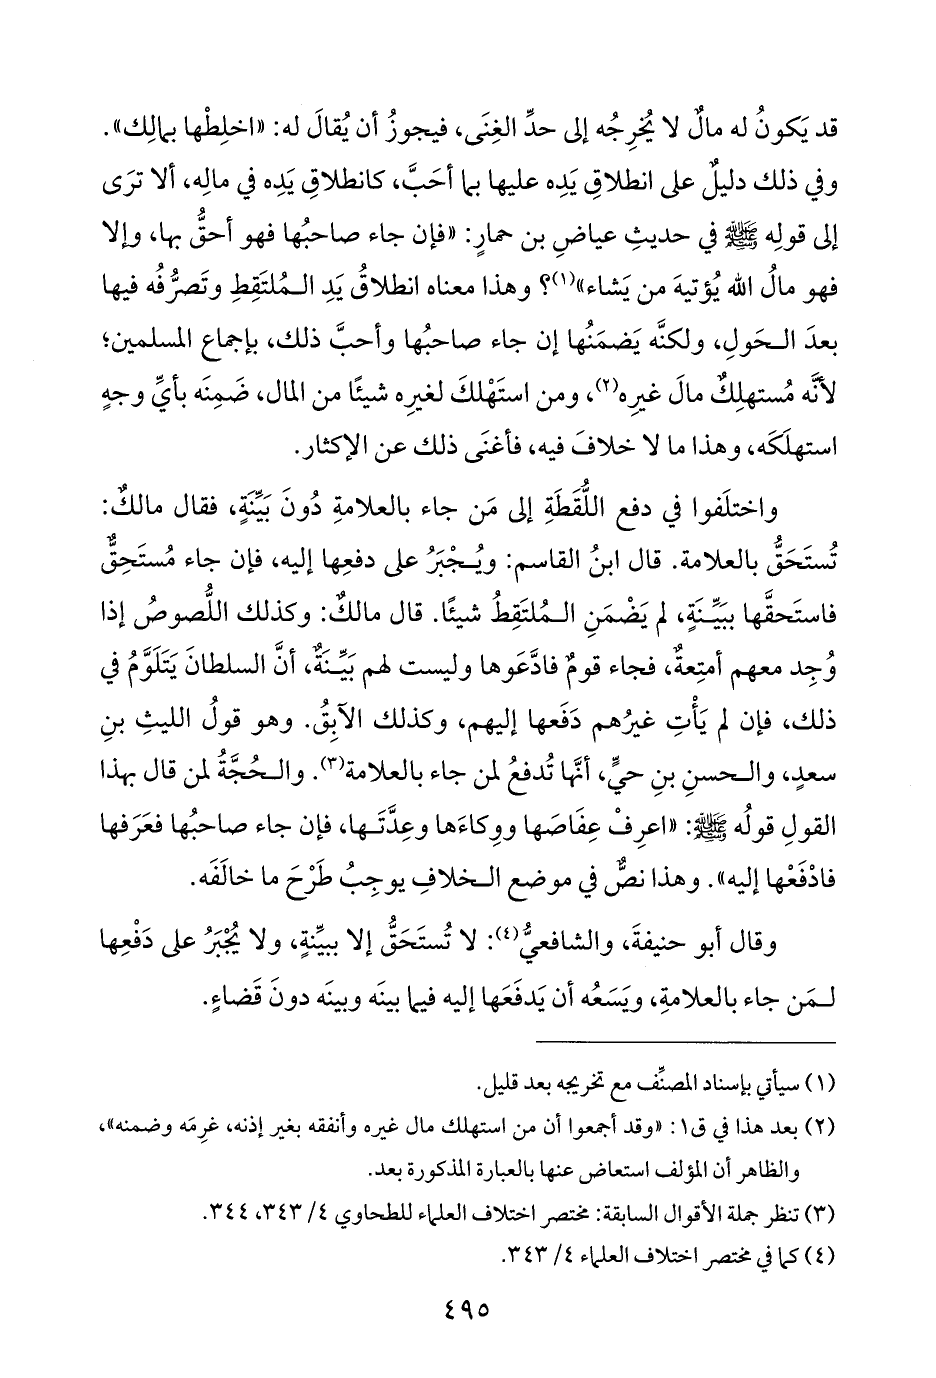 قد يَكونُ له مالٌ لا يُخرِجُه إلى حدِّ الغِنَى، فيجوزُ أن يُقالَ له: «اخلِطْها بمالِك».
وفي ذلك دليلٌ على انطلاقِ يَدِه عليها بما أحَبَّ، كانطلاقِ يَدِه في مالِه، ألا ترَى
إلى قولِه ﷺ في حديثِ عياضِ بن حمارٍ: «فإن جاء صاحبُها فهو أحقُّ بها، وإلا
فهو مالُ الله يُؤتيهَ من يَشاء»(١)؟ وهذا معناه انطلاقُ يَدِ الـمُلتَقِطِ وتَصرُّفُه فيها
بعدَ الـحَولِ، ولكنَّه يَضمَنُها إن جاء صاحبُها وأحبَّ ذلك، بإجماع المسلمين؛
لأنَّه مُستهلِكٌ مالَ غيرِه(٢)، ومن استَهْلكَ لغيرِه شيئًا من المال، ضَمِنَه بأيِّ وجهٍ
استهلَكَه، وهذا ما لا خلافَ فيه، فأغنَى ذلك عن الإكثار.
واختلَفوا في دفع اللُّقَطَةِ إلى مَن جاء بالعلامةِ دُونَ بَيِّنَةٍ، فقال مالكٌ:
تُستَحَقُّ بالعلامة. قال ابنُ القاسم: ويُـجْبَرُ على دفعِها إليه، فإن جاء مُستَحِقٌّ
فاستَحقَّها ببَيِّـنَةٍ، لم يَضْمَنِ الـمُلتَقِطُ شيئًا. قال مالكٌ: وكذلك اللُّصوصُ إذا
وُجِد معهم أمتِعةٌ، فجاء قومٌ فادَّعَوها وليست لهم بَيِّـنَةٌ، أنَّ السلطانَ يَتَلَوَّمُ في
ذلك، فإن لم يَأْتِ غيرُهم دَفَعها إليهم، وكذلك الآبِقُ. وهو قولُ الليثِ بنِ
سعدٍ، والـحسنِ بنِ حيٍّ، أنَّها تُدفعُ لمن جاء بالعلامة(٣). والـحُجَّةُ لمن قال بهذا
القولِ قولُه ﷺ: «اعرِفْ عِفَاصَها ووِكاءَها وعِدَّتَـها، فإن جاء صاحبُها فعَرَفها
فادْفَعْها إليه». وهذا نصٌّ في موضع الـخلافِ يوجِبُ طَرْحَ ما خالَفَه.
وقال أبو حنيفةَ، والشافعيُّ(٤): لا تُستَحَقُّ إلا ببيِّنةٍ، ولا يُجْبَرُ على دَفْعِها
لـمَن جاء بالعلامةِ، ويَسَعُه أن يَدفَعَها إليه فيما بينَه وبينَه دونَ قَضاءٍ.
(١) سيأتي بإسناد المصنِّف مع تخريجه بعد قليل.
(٢) بعد هذا في ق١: «وقد أجمعوا أن من استهلك مال غيره وأنفقه بغير إذنه، غرِمَه وضمنه»،
والظاهر أن المؤلف استعاض عنها بالعبارة المذكورة بعد.
(٣) تنظر جملة الأقوال السابقة: مختصر اختلاف العلماء للطحاوي ٤/ ٣٤٣، ٣٤٤.
(٤) كما في مختصر اختلاف العلماء ٤/ ٣٤٣.
٤٩٥